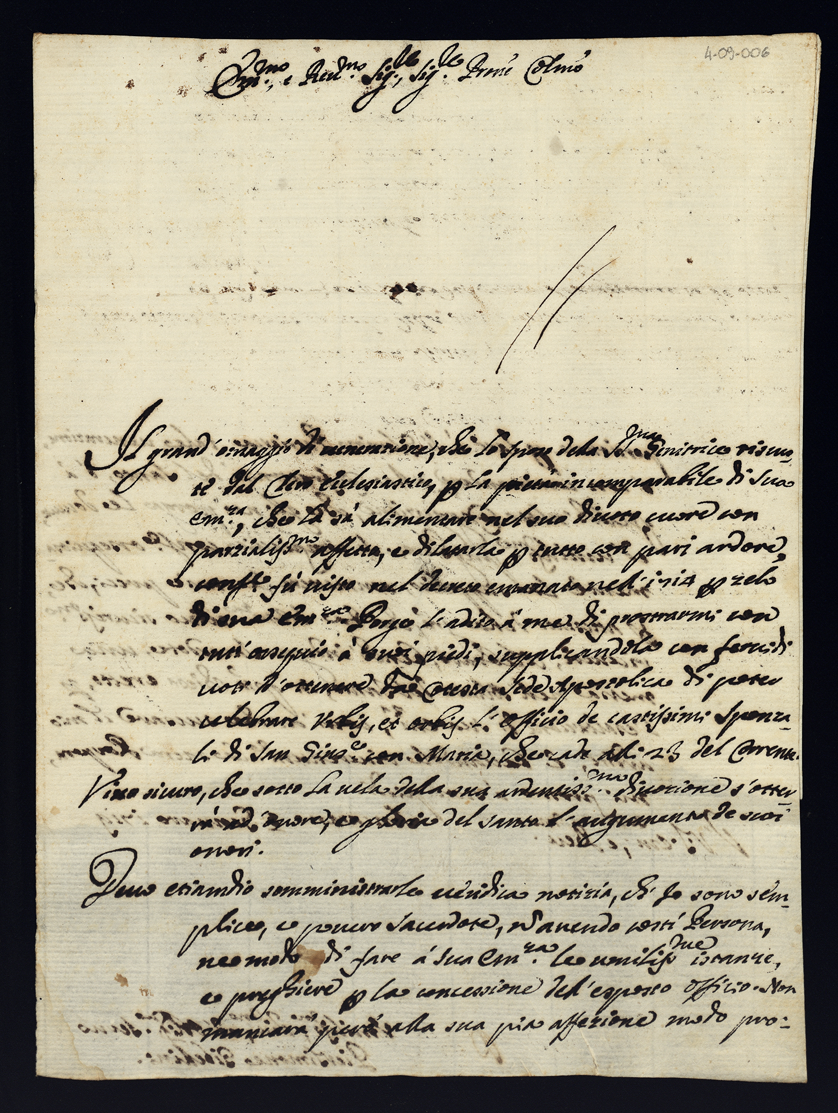 4-09-006
Em.mo, e Rev.mo Sig.re, Sig.re Prone Colmo
Il grand'omaggio di venerazione, che lo sposo della S.ma Genitrice riscuo-
te dal Clero Eclesiastico, p la pietà incomparabile di Sua
Em.za, che la sà alimentare nel suo divoto cuore con
parzialiss.mo affetto, e dilatarla p tutto con pari ardore,
fù visto nel decreto emanato nell'1714 p zelo
di sua Em.za Porge l'adito à me di prostrarmi con
tutt'ossequio à suoi piedi, supplicandola con fervidi
voti d'ottenere da cotesta Sede Apostolica di poter
celebrare Urbis, et orbis l'officio de castissimi Sponza-
li di San Gius.e con Maria, che cade adi 23 del Corrente.
Vivo sicuro, che sotto la vela della sua ardentiss.ma divozione s'otter-
rà ad onore, e gloria del santo l'augumento de suoi
onori.
Devo etiandio somministrarle veridica notizia, ch'Io sono sem-
plice, e povero Sacerdote, nõ avendo costì Persona,
ne modo di fare à Sua Em.za le umiliss.me istanze,
e preghiere p la concessione dell'esposto officio. Non
mancarà però alla sua pia affezione modo pro-